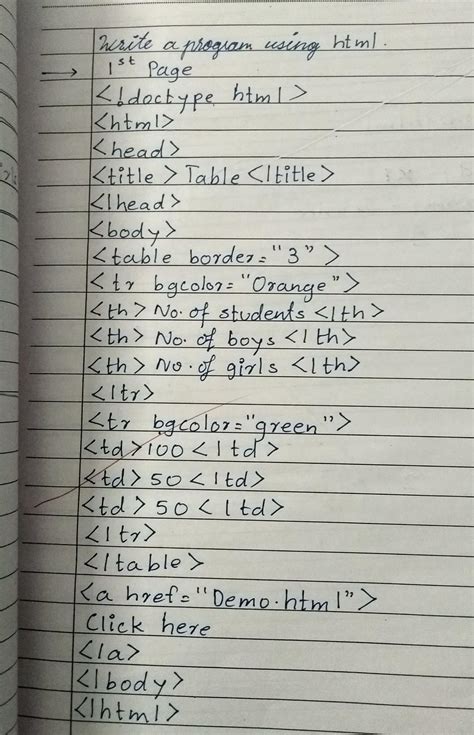 Write a program using html.
→ 1st Page
<!doctype html>
<html>
<head>
<title> Table </title>
</head>
<body>
<table border="3">
<tr bgcolor="Orange">
<th> No. of students </th>
<th> No. of boys </th>
<th> No. of girls </th>
</tr>
<tr bgcolor="green">
<td>100 </td>
<td> 50 </td>
<td> 50 </td>
</tr>
</table>
<a href="Demo.html">
Click here
</a>
</body>
</html>